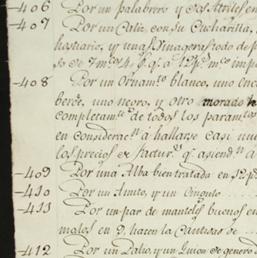 406 Por un palabrero y dos Atriles en
407 Por un Caliz, con su Cucharilla,
hostiario, y una Vinagera todo de p
so de 7 m.s 4
408 Por un Ornam.to blanco, uno enc
uno negro, y otro morado
completam.te de todos los param.tos
en considerac.n à hallarse casi nue
los precios de factur.s q.e asiend.n à
409 Por una Alba bien tratada en 12 p.s
410 Por un Amito, y un Cingulo
411 Por un par de manteles buenos en
malos en D. hacen la Cantidad de
412 Por un Palio, y un Guion de genero